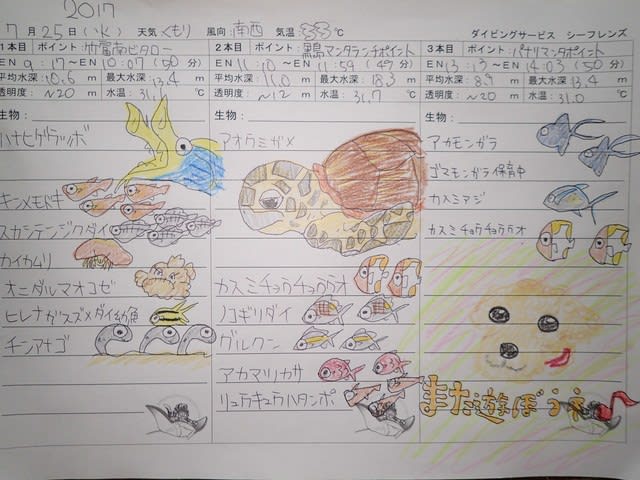 2017
7月25日(火) 天気 くもり 風向 南西 気温 33℃ ダイビングサービス シーフレンズ
1本目 ポイント:竹富南ビタロー
EN 9:17~EN 10:07 (50分)
平均水深:10.6 m 最大水深 13.4 m
透明度:~20 m 水温:31.6 ℃
生物:
ハナヒゲウツボ
キンメモドキ
スカシテンジクダイ
カイカムリ
オニダルマオコゼ
ヒレナガスズメダイ幼魚
チンアナゴ
2本目 ポイント:黒島マンタランチポイント
EN 11:10~EN 11:59 (49分)
平均水深:11.0 m 最大水深:18.3 m
透明度:~12 m 水温:31.7 ℃
生物:
アオウミガメ
カスミチョウチョウウオ
ノコギリダイ
グルクン
アカマツカサ
リュウキュウハタンポ
3本目 ポイント:パナリマンタポイント
EN 13:13~EN 14:03 (50分)
平均水深:8.9 m 最大水深:13.4 m
透明度:~20 m 水温:31.0 ℃
生物:
アカモンガラ
ゴマモンガラ 保育中
カスミアジ
カスミチョウチョウウオ
また遊ぼうネ